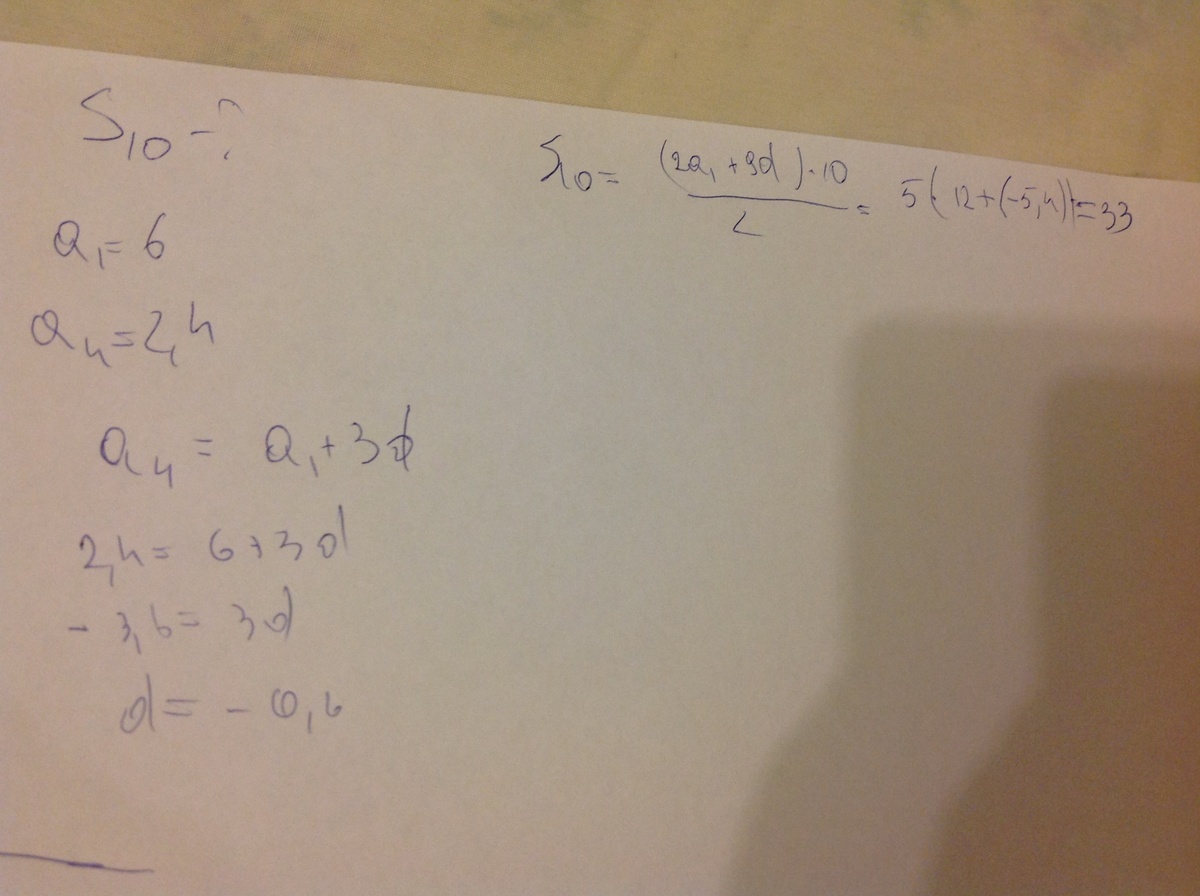 S₁₀ - ?
a₁ = 6
a₄ = 2,4
a₄ = a₁ + 3d
2,4 = 6 + 3d
- 3,6 = 3d
d = - 0,6
S₁₀ = (2a₁ + 9d) · 10 / 2 = 5 ( 12 + (-5,4)) = 33